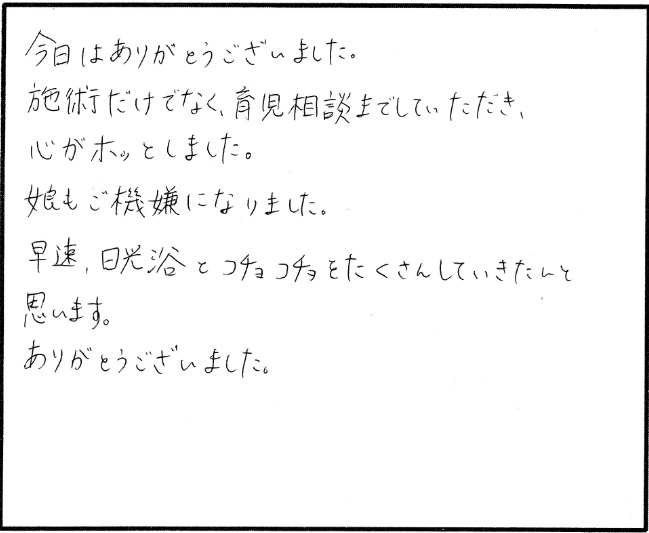 今日はありがとうございました。
施術だけでなく、育児相談までしていただき、
心がホッとしました。
娘もご機嫌になりました。
早速、日光浴とコチョコチョをたくさんしていきたいと
思います。
ありがとうございました。